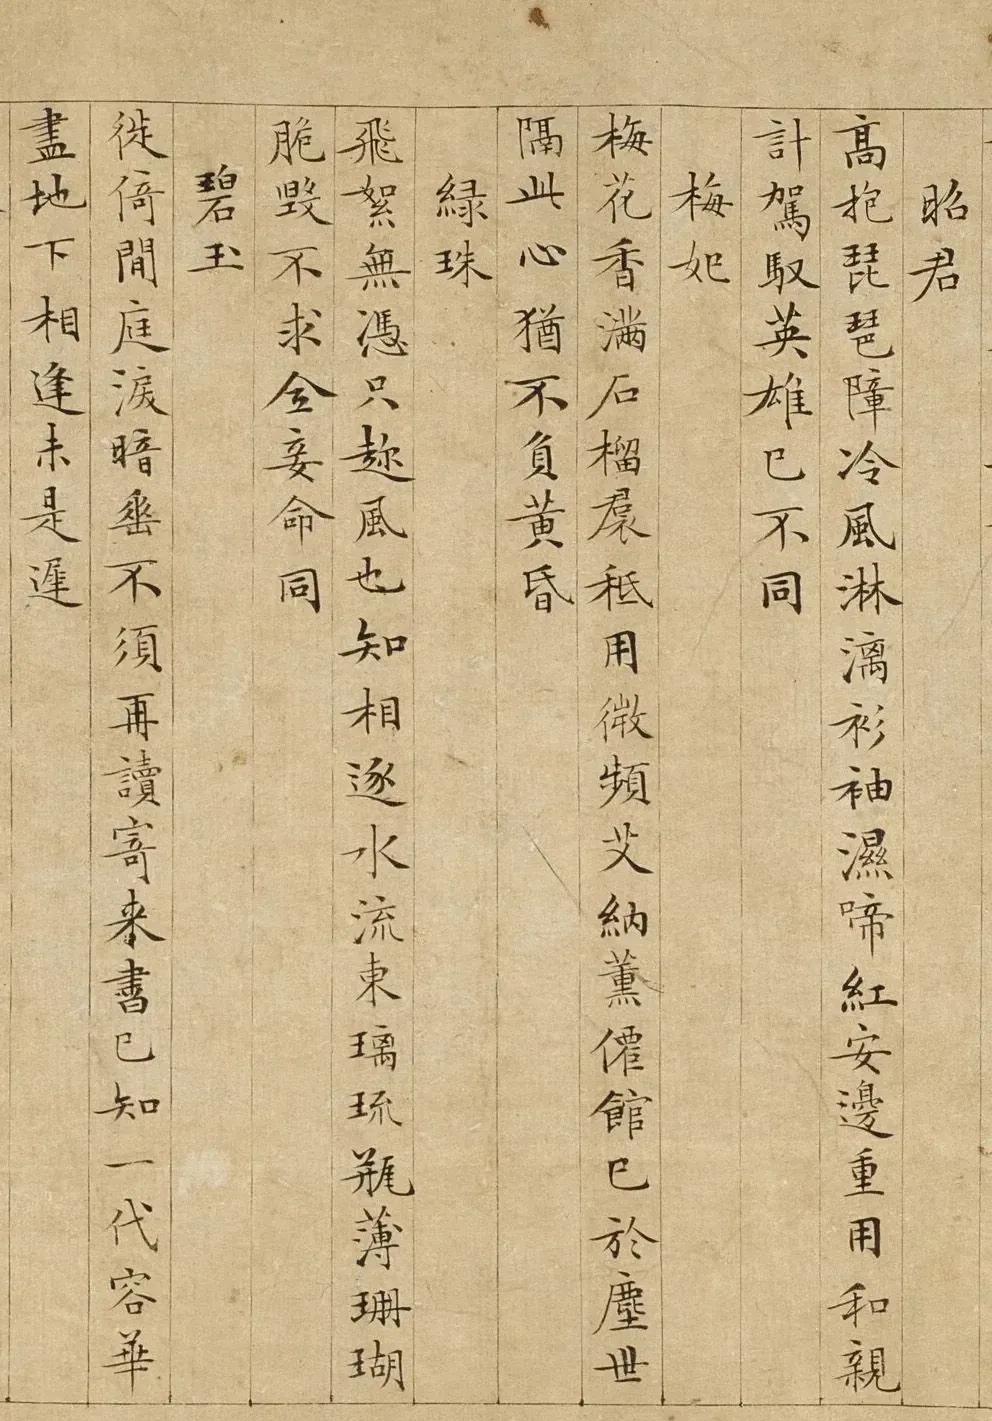 昭君
高抱琵琶障冷風淋漓衫袖濕啼紅安邊重用和親
計駕馭英雄已不同
梅妃
梅花香滿石榴裠秪用微頻艾納薰僊館已於塵世
隔此心猶不負黄昏
緑珠
飛絮無憑只趂風也知相逐水流東璃琉瓶薄珊瑚
脆毀不求全妾命同
碧玉
徙倚閒庭淚暗垂不須再讀寄来書已知一代容華
盡地下相逢未是遲